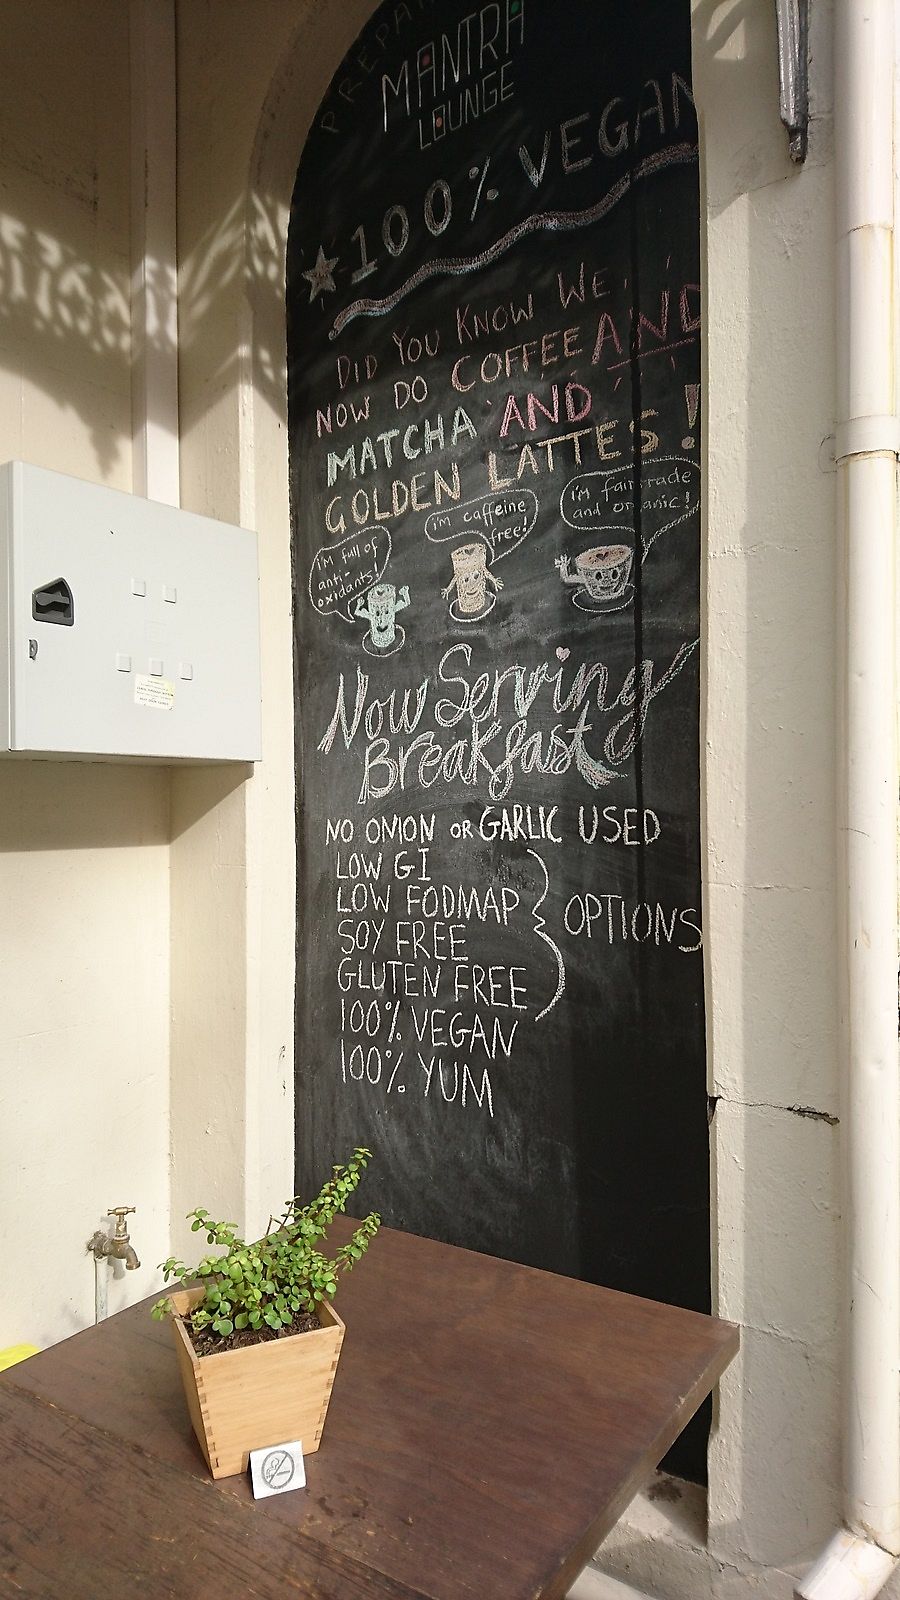 MANTRA
LOUNGE
100% VEGAN
DID YOU KNOW WE
NOW DO COFFEE AND
MATCHA AND
GOLDEN LATTES!
i'm full of
anti-
oxidants!
i'm caffeine
free!
i'm fairtrade
and organic!
Now Serving
Breakfast
NO ONION OR GARLIC USED
LOW GI
LOW FODMAP
SOY FREE
GLUTEN FREE
OPTIONS
100% VEGAN
100% YUM